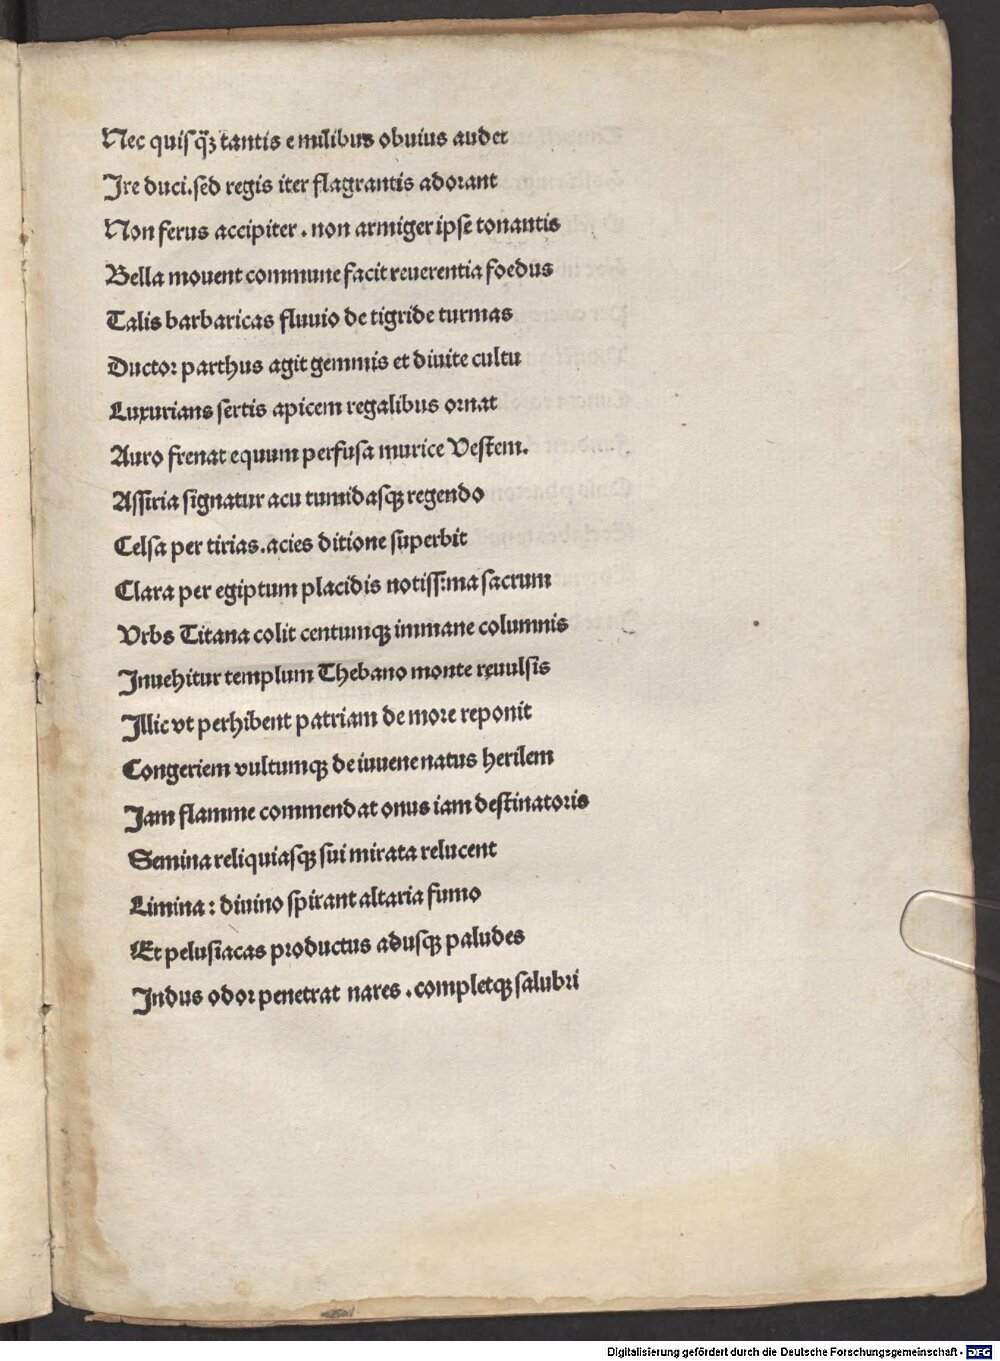 Nec quisqʒ̈ tantis e milibus obuius audet
Ire duci.sed regis iter flagrantis adorant
Non ferus accipiter . non armiger ipse tonantis
Bella mouent commune facit reuerentia foedus
Talis barbaricas fluuio de tigride turmas
Ductor parthus agit gemmis et diuite cultu
Luxurians sertis apicem regalibus ornat
Auro frenat equum perfusa murice Vestem.
Assiria signatur acu tumidasqʒ regendo
Celsa per tirias.acies ditione superbit
Clara per egiptum placidis notiss:ma sacrum
Vrbs Titana colit centumqʒ immane columnis
Inuehitur templum Thebano monte reuulsis
Illic vt perhibent patriam de more reponit
Congeriem vultumqʒ de iuuene natus herilem
Iam flamme commendat onus iam destinatoris
Semina reliquiasqʒ sui mirata relucent
Limina : diuino spirant altaria fumo
Et pelusiacas productus adusqʒ paludes
Indus odor penetrat nares . completqʒ salubri
Digitalisierung gefördert durch die Deutsche Forschungsgemeinschaft - DFG